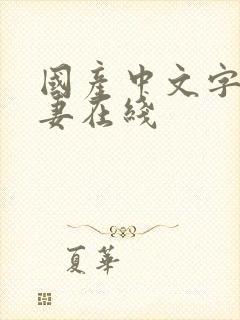 國產中文字
妻在綫
夏華